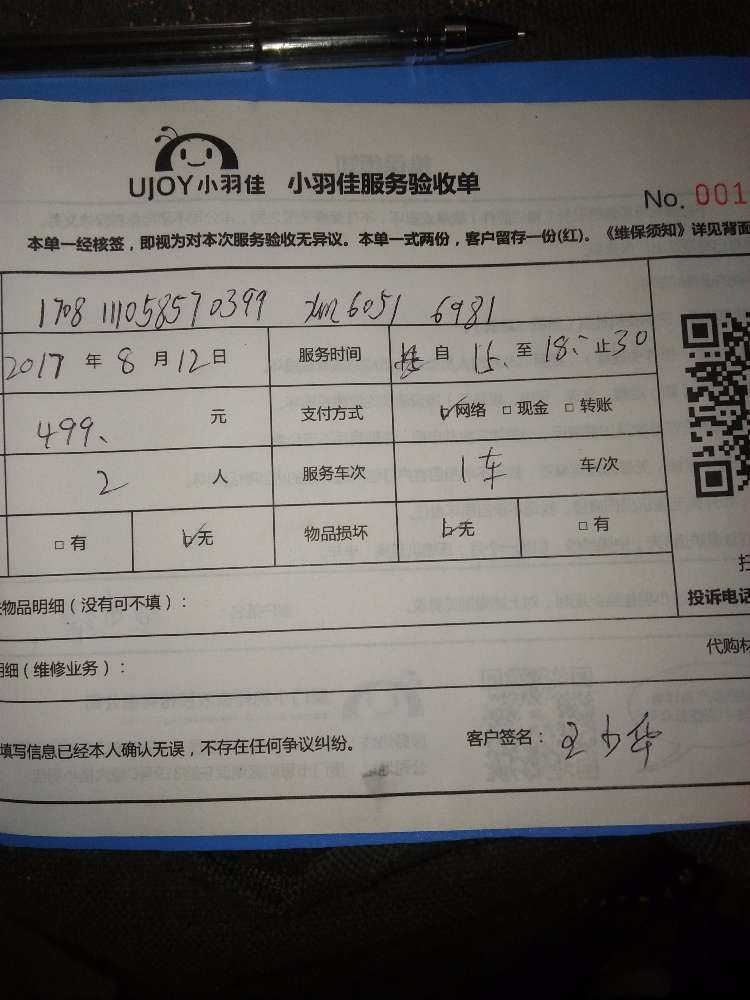 UJOY小羽佳 小羽佳服务验收单
No. 001
本单一经核签，即视为对本次服务验收无异议。本单一式两份，客户留存一份(红)。《维保须知》详见背面
1708111058570399 xm6051 6981
2017 年 8 月 12 日 服务时间 自 15、 至 18:止30
499、 元 支付方式 ☑网络 □现金 □转账
2 人 服务车次 1车 车/次
□有 ☑无 物品损坏 ☑无 □有
物品明细（没有可不填）：
投诉电话
明细（维修业务）：
代购材
填写信息已经本人确认无误，不存在任何争议纠纷。 客户签名：王少华